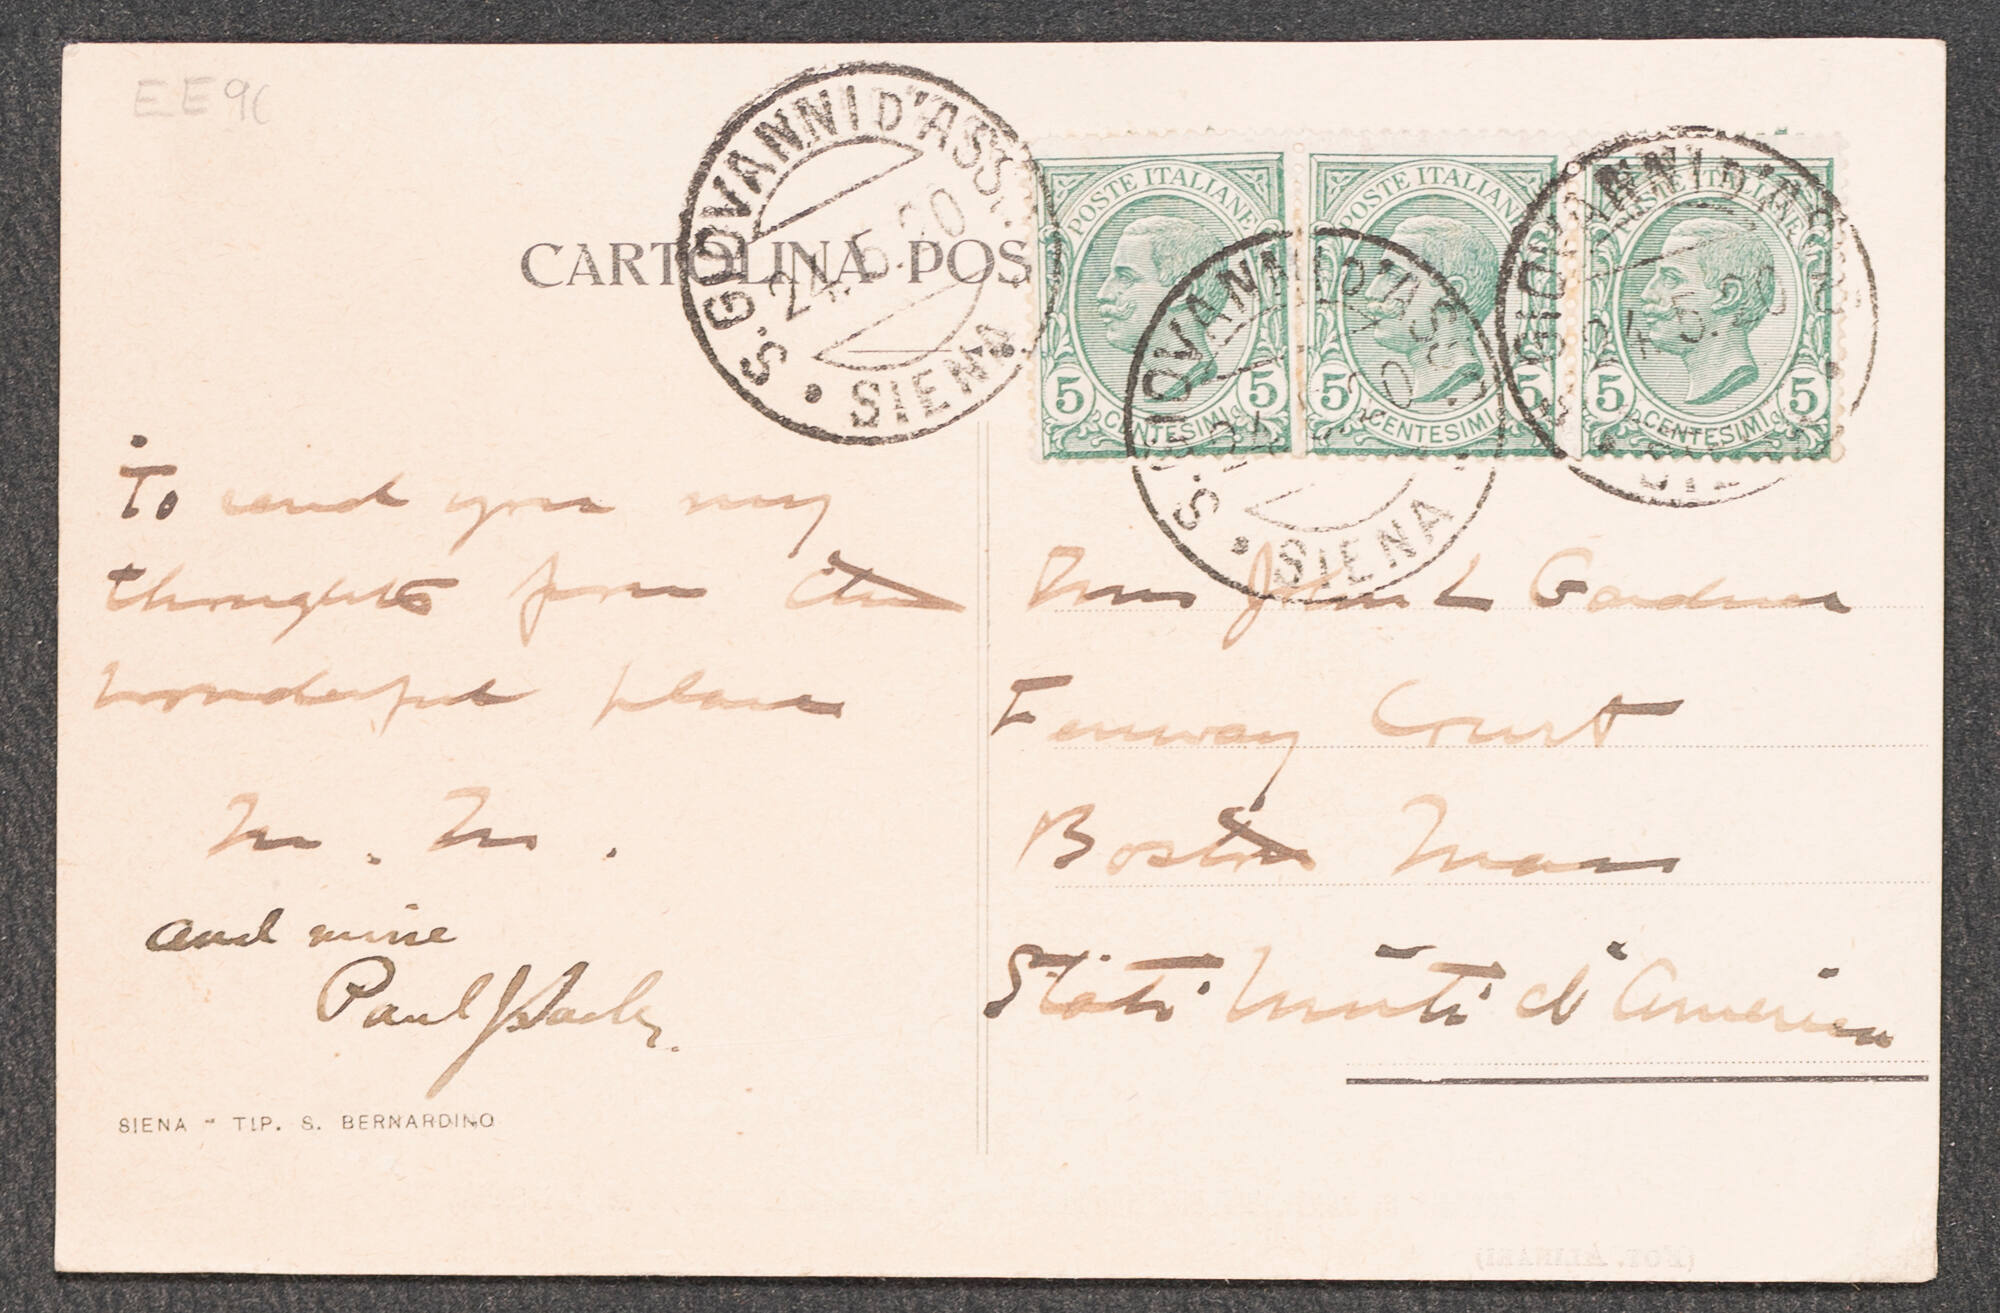 EE9
CARTOLINA POS
S. GIOVANNI D'ASS
24.5.20
SIENA
POSTE ITALIANE
5 CENTESIMI 5
POSTE ITALIANE
5 CENTESIMI 5
POSTE ITALIANE
5 CENTESIMI 5
S. GIOVANNI D'ASSO
SIENA
GIOVANNI D'
24.5.20
To send you my
thoughts from this
wonderful place
M. M.
and mine
Paul J Sachs.
SIENA - TIP. S. BERNARDINO
Mrs John L Gardner
Fenway Court
Boston Mass
Stati Uniti d'America
(FOT. ALINARI)